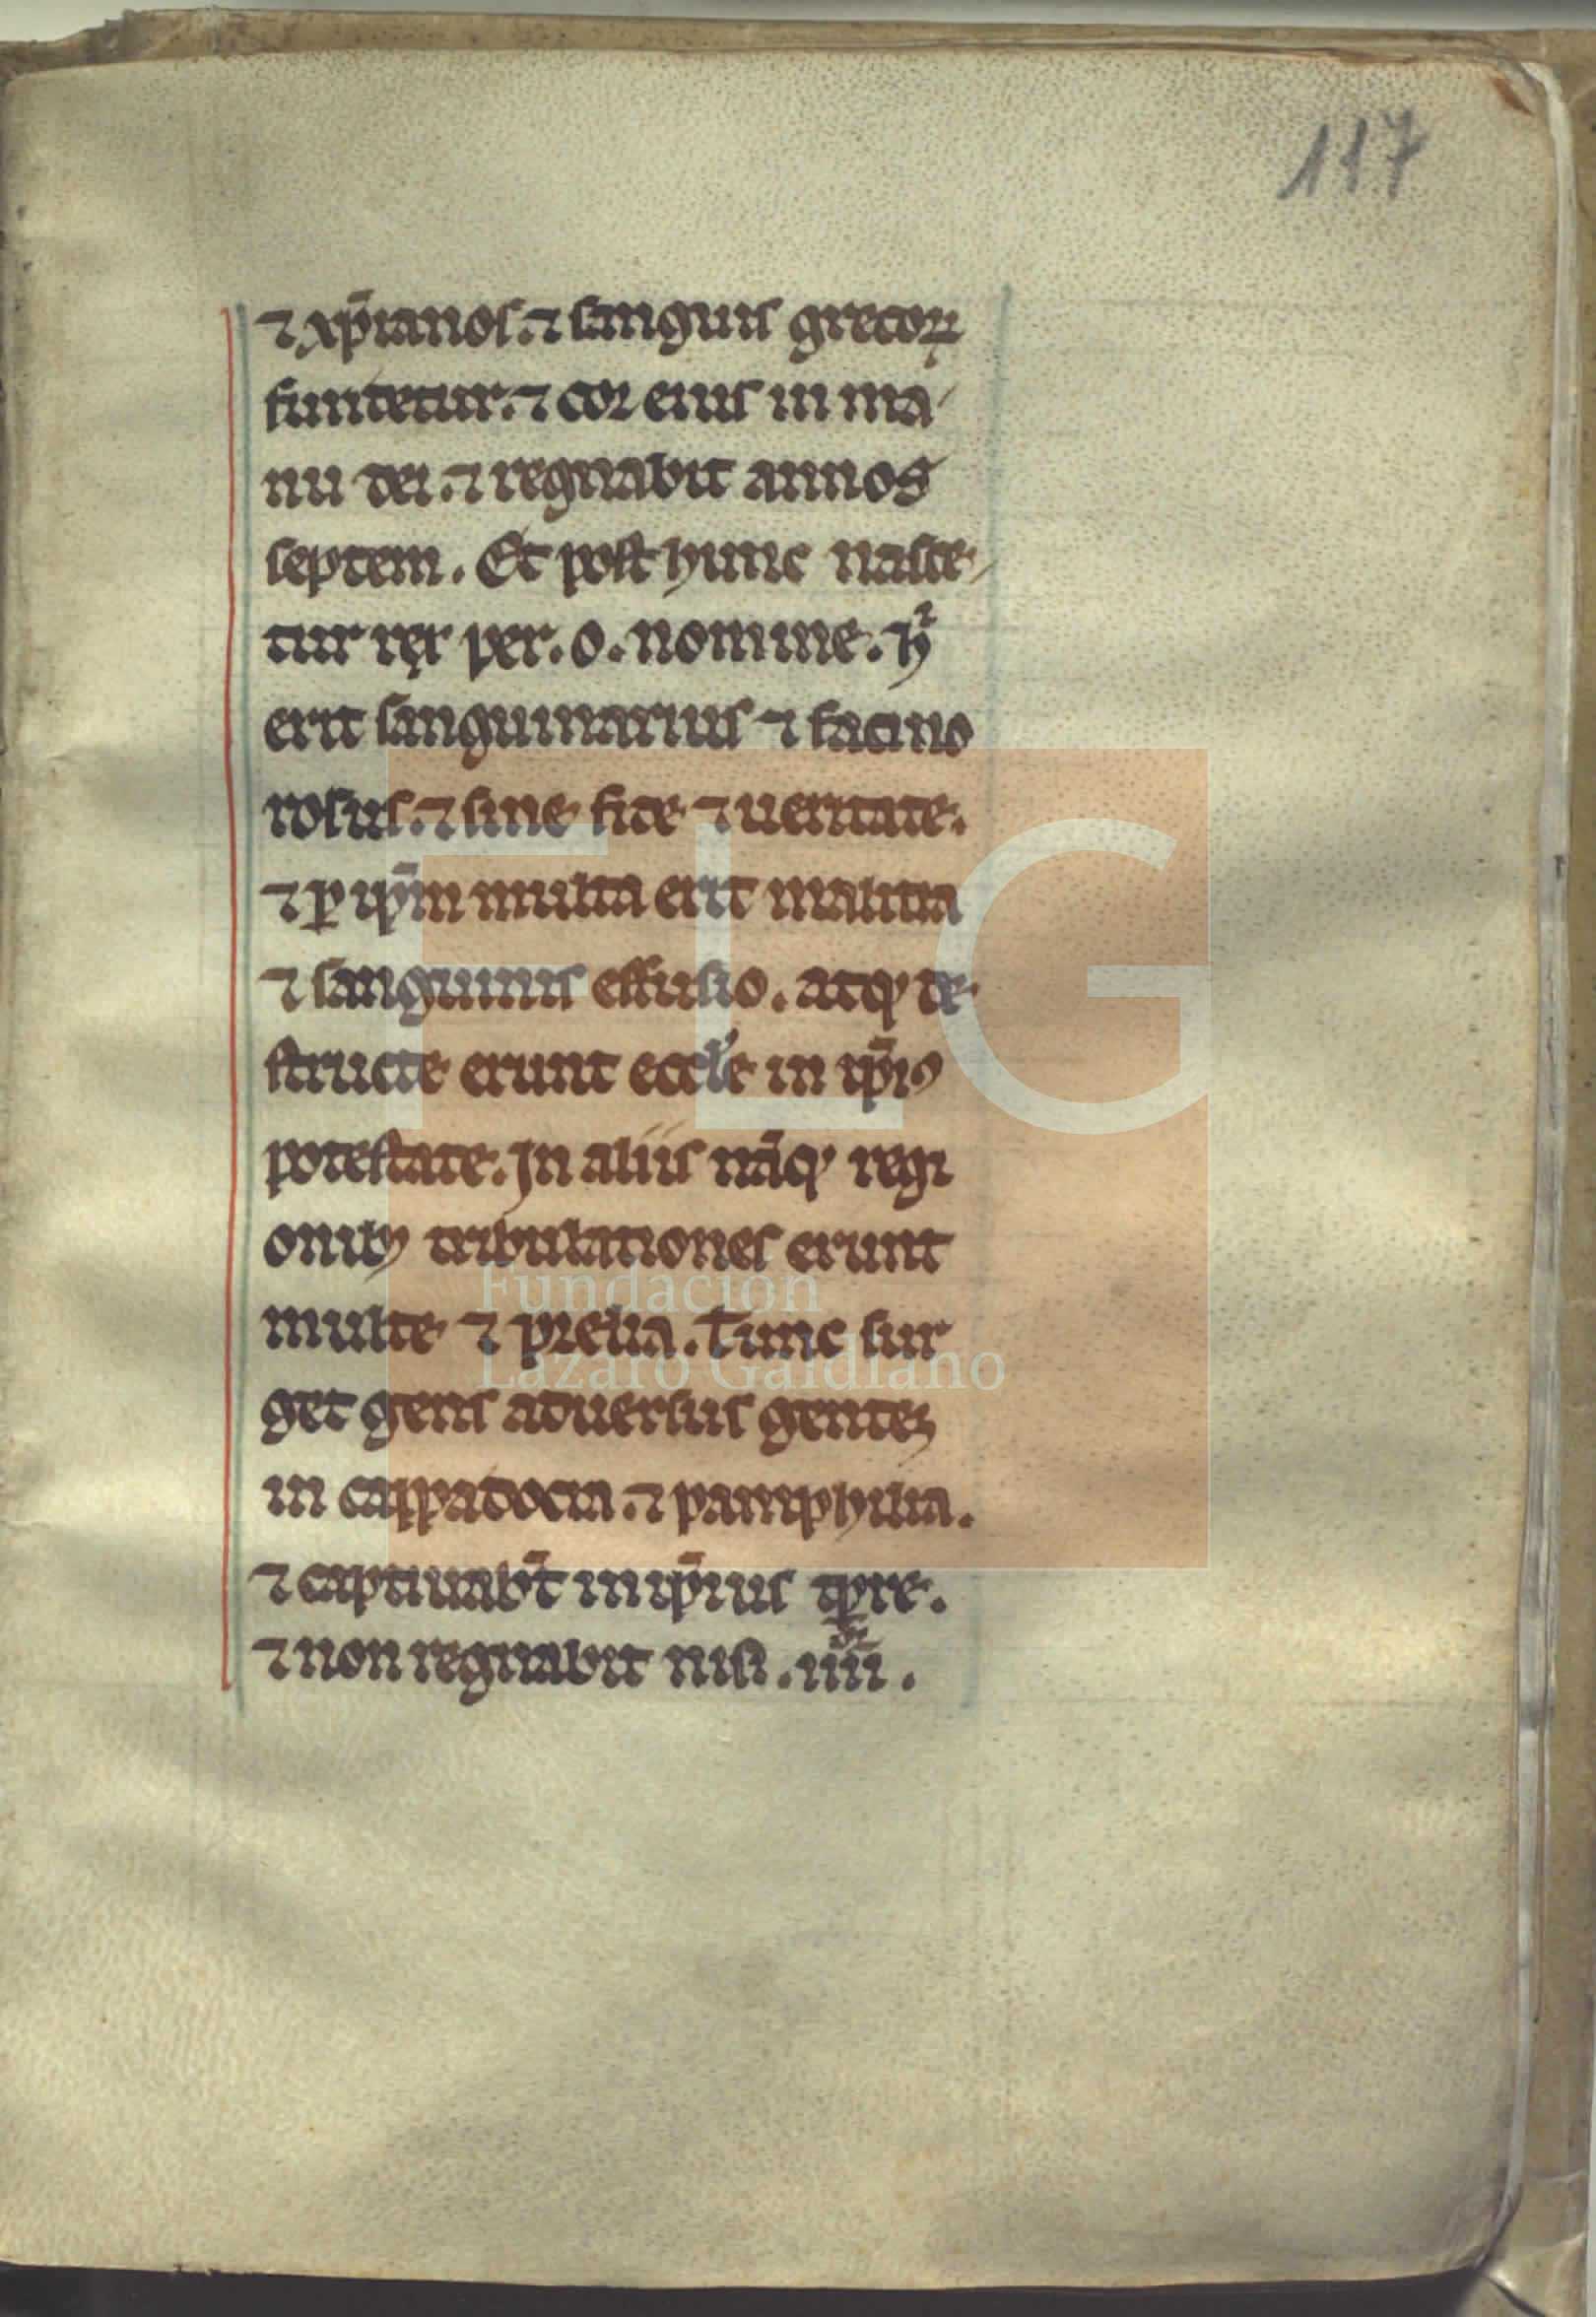 117
⁊ xp̄ianos. ⁊ sanguis grecoꝝ
funđetur. ⁊ cor eius in ma
nu dei. ⁊ regnabit annos
septem. Et post hunc nasce
tur rex per .o. nomine. ⁊ h̾
erit sanguinarius ⁊ facino
rosus. ⁊ sine fide ⁊ ueritate.
⁊ ꝑ ip̄m multa erit malitia
⁊ sanguinis effusio. atqꝫ de
structe erunt eccl̓e in ip̄iꝰ
potestate. In aliis nāqꝫ regi
onibꝫ tribulationes erunt
multe ⁊ prelia. Tunc sur
get gens aduersus gentem
in cappadocia. ⁊ pamphilia.
⁊ captiuabt̄ in ip̄ius tp̄re.
⁊ non regnabit nisi .iiii.
FLG
Fundación
Lázaro Galdiano